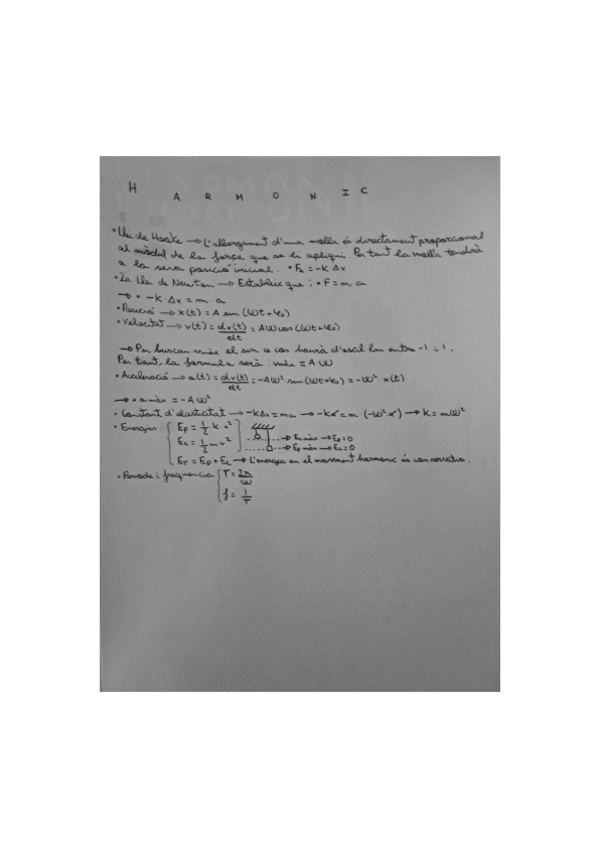 HARMONIC
• Llei de Hooke → L'allargament d'una molla és directament proporcional
al mòdul de la força que se li apliqui. Per tant la molla tendirà
a la seva posició inicial. • Fe = -K Δx
• 2a Llei de Newton → Estableix que: • F = m·a
→ • -K·Δx = m·a
• Posició → x(t) = A sin (ωt+φ₀)
• Velocitat → v(t) = dx(t)/dt = Aω cos (ωt+φ₀)
→ Per buscar vmàx el sin o cos haurà d'oscil·lar entre -1 i 1.
Per tant, la formula serà: vmàx = A·ω
• Acceleració → a(t) = dv(t)/dt = -Aω² sin(ωt+φ₀) = -ω² x(t)
→ • amàx = -A·ω²
• Constant d'elasticitat → -KΔx = ma → -Kx = m (-ω²x) → K = mω²
• Energies Ep = 1/2 K x²
→ Ec màx → Ep = 0
Ec = 1/2 m v²
→ Ep màx → Ec = 0
ET = Ep + Ec → L'energia en el moviment harmonic és conservativa.
• Període i freqüència T = 2π/ω
f = 1/T